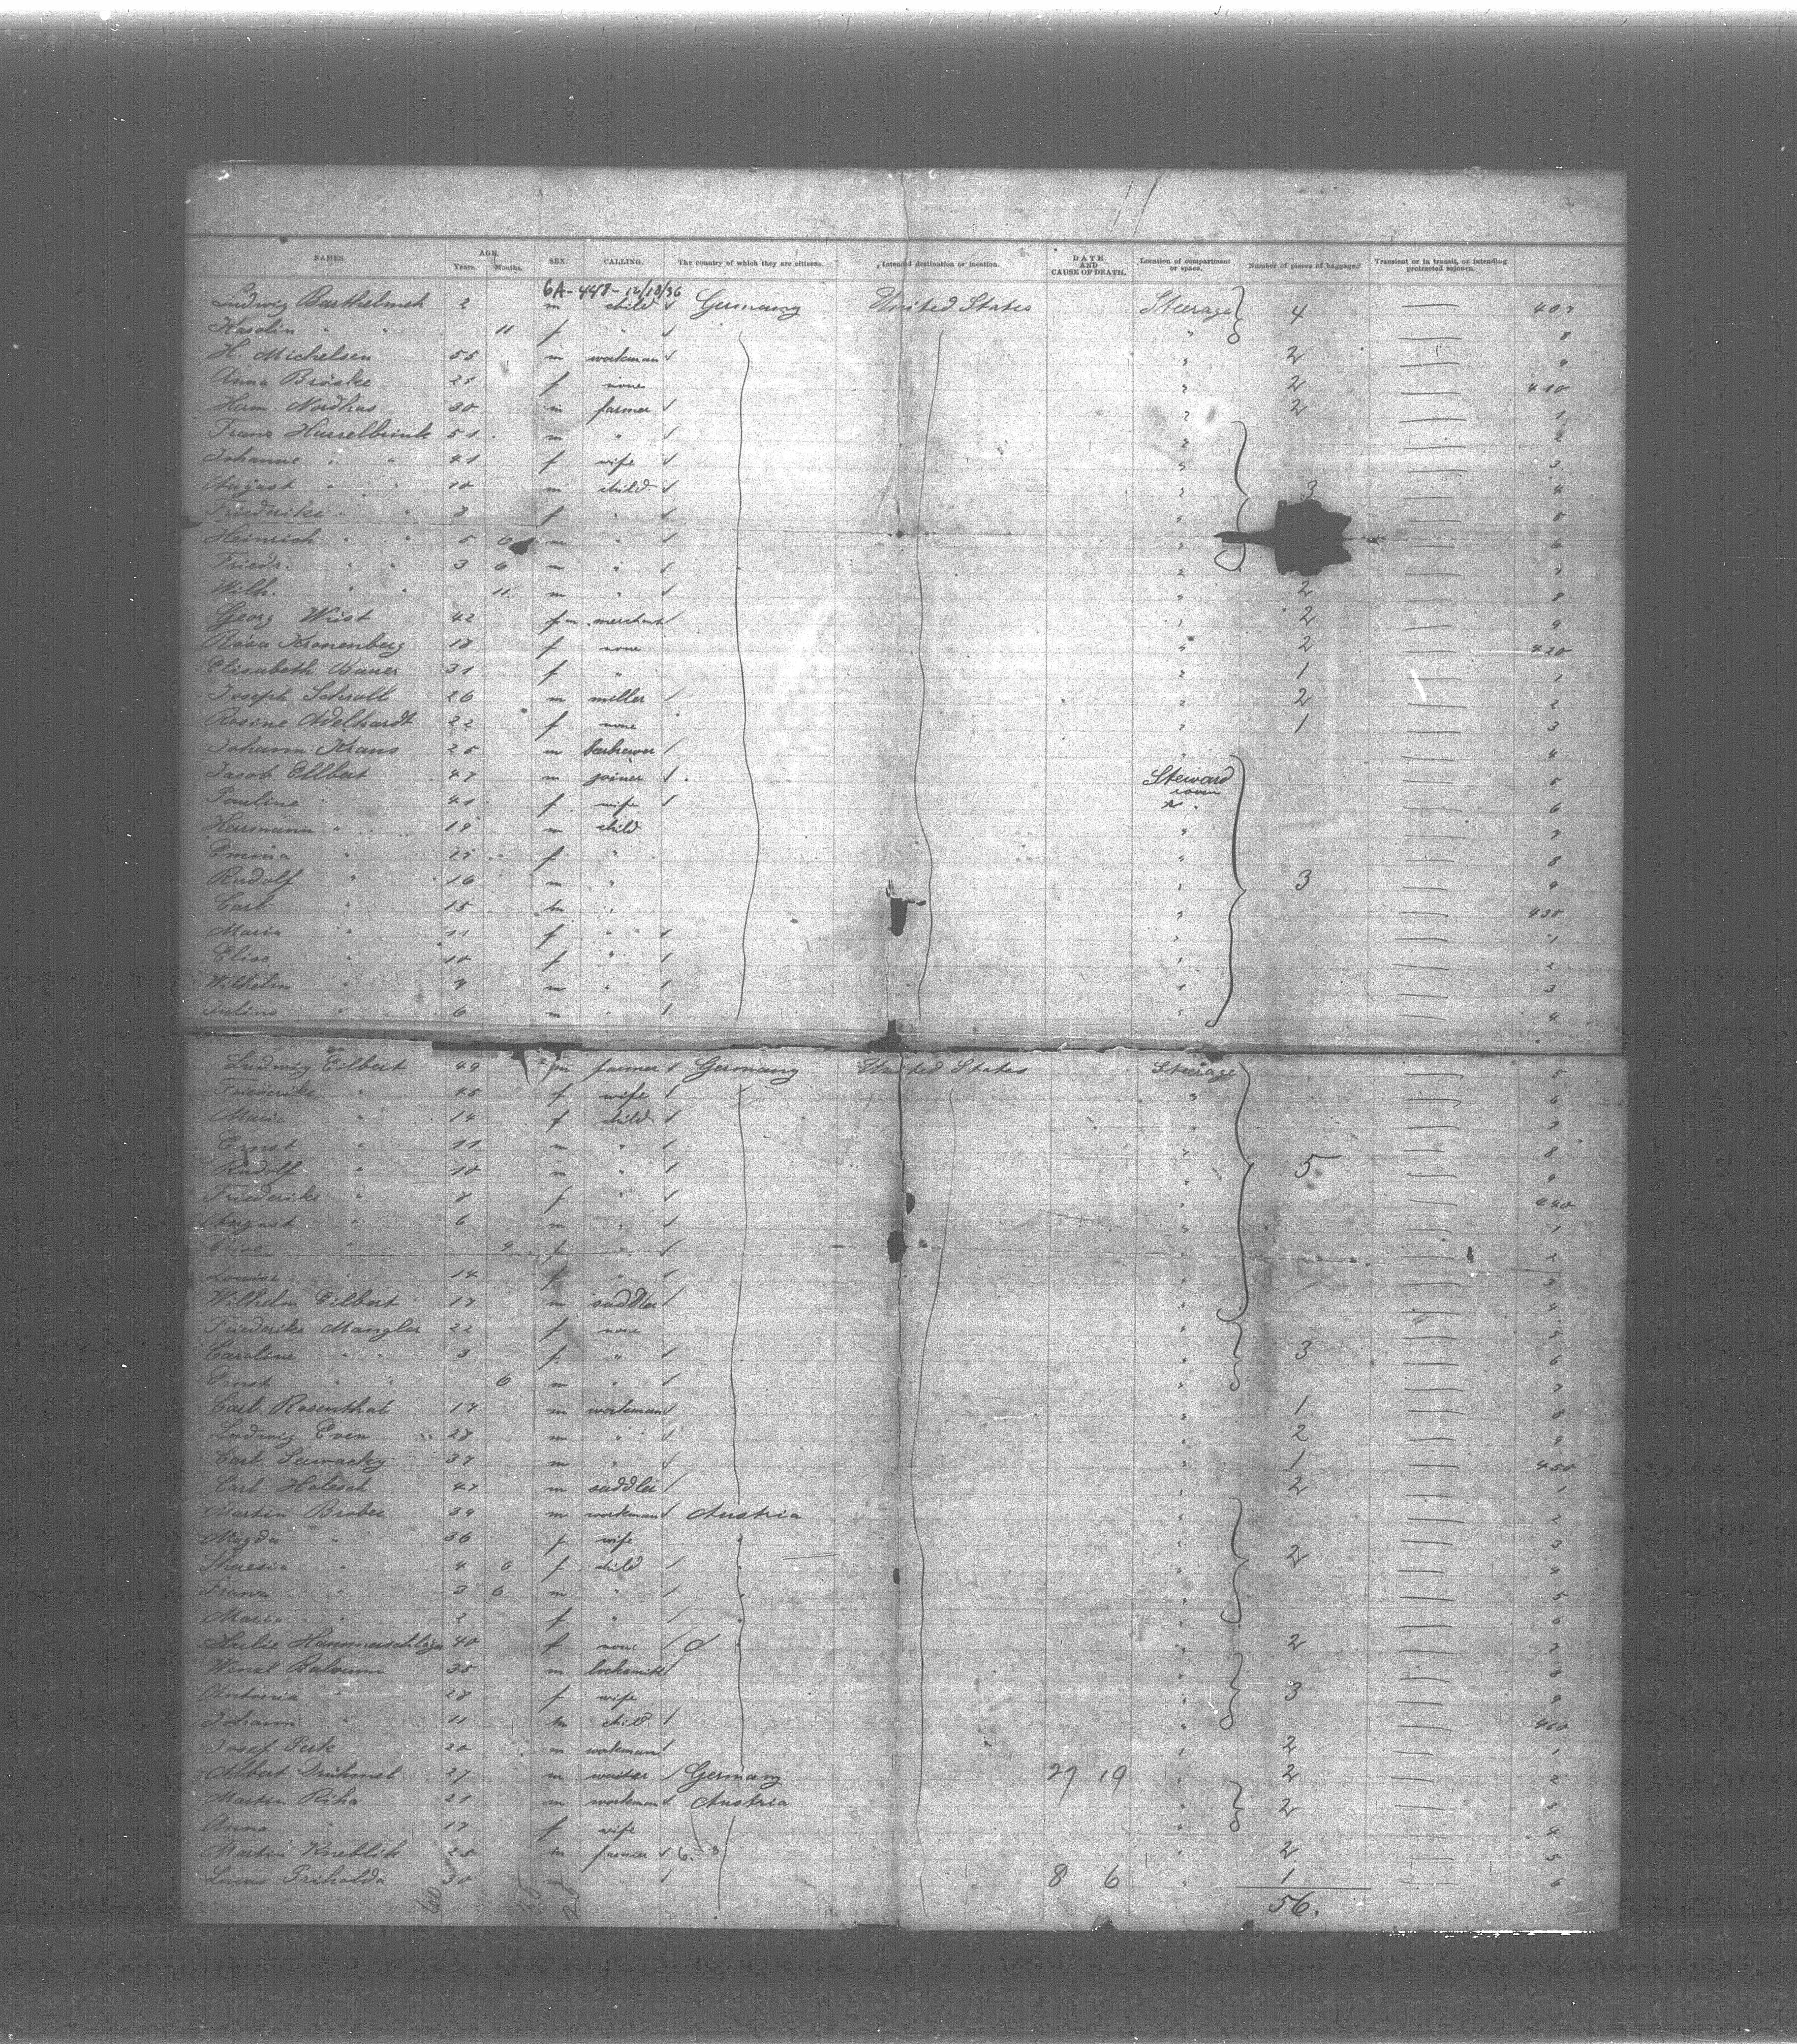 NAMES. AGE. SEX. CALLING. The country of which they are citizens. Intended destination or location. DATE AND CAUSE OF DEATH. Location of compartment or space. Number of pieces of baggage. Transient or in transit, or intending protracted sojourn.
Years. Months.
6A-448-12/18/36
Ludwig Barthelmeh 2 m child Germany United States Steerage 4 407
Karolin " " 11 f " " 8
H. Michelsen 55 m workman " 2 9
Anna Bröske 21 f none " 2 410
Herm. Nordhus 30 m farmer " 2 1
Franz Hasselbrink 51 m " " 2
Johanne " " 41 f wife " 3
August " " 10 m child " 3 4
Friederike " " 8 f " " 5
Heinrich " " 5 6 m " " 6
Friedr. " " 3 6 m " " 7
Wilh. " " 11 m " " 2 8
Georg Wüst 42 m merchant " 2 9
Rosa Kronenberg 18 f none " 2 420
Elisabeth Bauer 31 f " " 1 1
Joseph Schroll 26 m miller " 2 2
Rosine Adelhardt 22 f none " 1 3
Johann Kraus 25 m " 4
Jacob Eilbert 47 m joiner Steward room 5
Pauline " 41 f wife " 6
Herrmann " 19 m child " 7
Emma " f " " 8
Rudolf " 16 m " " 3 9
Carl " 15 m " " 430
Maria " 11 f " " 1
Elise " 10 f " " 2
Wilhelm " 8 m " " 3
Julius " 6 m " " 4
Ludwig Eilbert 49 m farmer Germany United States Steerage 5
Friederike " 45 f wife " 6
Marie " 14 f child " 7
Ernst " 11 m " " 8
Rudolf " 10 m " " 5 9
Friederike " 8 f " " 440
August " 6 m " " 1
Elise " 9 f " " 2
Louise " 14 f " " 3
Wilhelm Eilbert 17 m saddler " 4
Friederike Mangler 22 f none " 5
Caroline " " 3 f " " 3 6
Ernst " " 6 m " " 7
Carl Rosenthal 17 m workman " 1 8
Ludwig Even 28 m " " 2 9
Carl 37 m " " 1 450
Carl Holesch 47 m saddler " 2 1
Martin Brobec 39 m workman Austria " 2
Magda " 36 f wife " " 3
Theresia " 4 6 f child " 2 4
Franz " 3 6 m " " 5
Maria " 2 f " " 6
Julie Hammerschlag 40 f none " 2 7
Wenzl 35 m locksmith " 8
Antonia " 28 f wife " 3 9
Johann " 11 m child " 460
Josef 20 m workman " 2 1
Albert Drühmel 27 m waiter Germany 27 19 " 2 2
Martin Riha 21 m workman Austria " 2 3
Anna " 17 f wife " 4
Martin Kneblik 25 m farmer " 2 5
Lucas Priholda 30 m " 8 6 " 1 6
60 35 25 56.